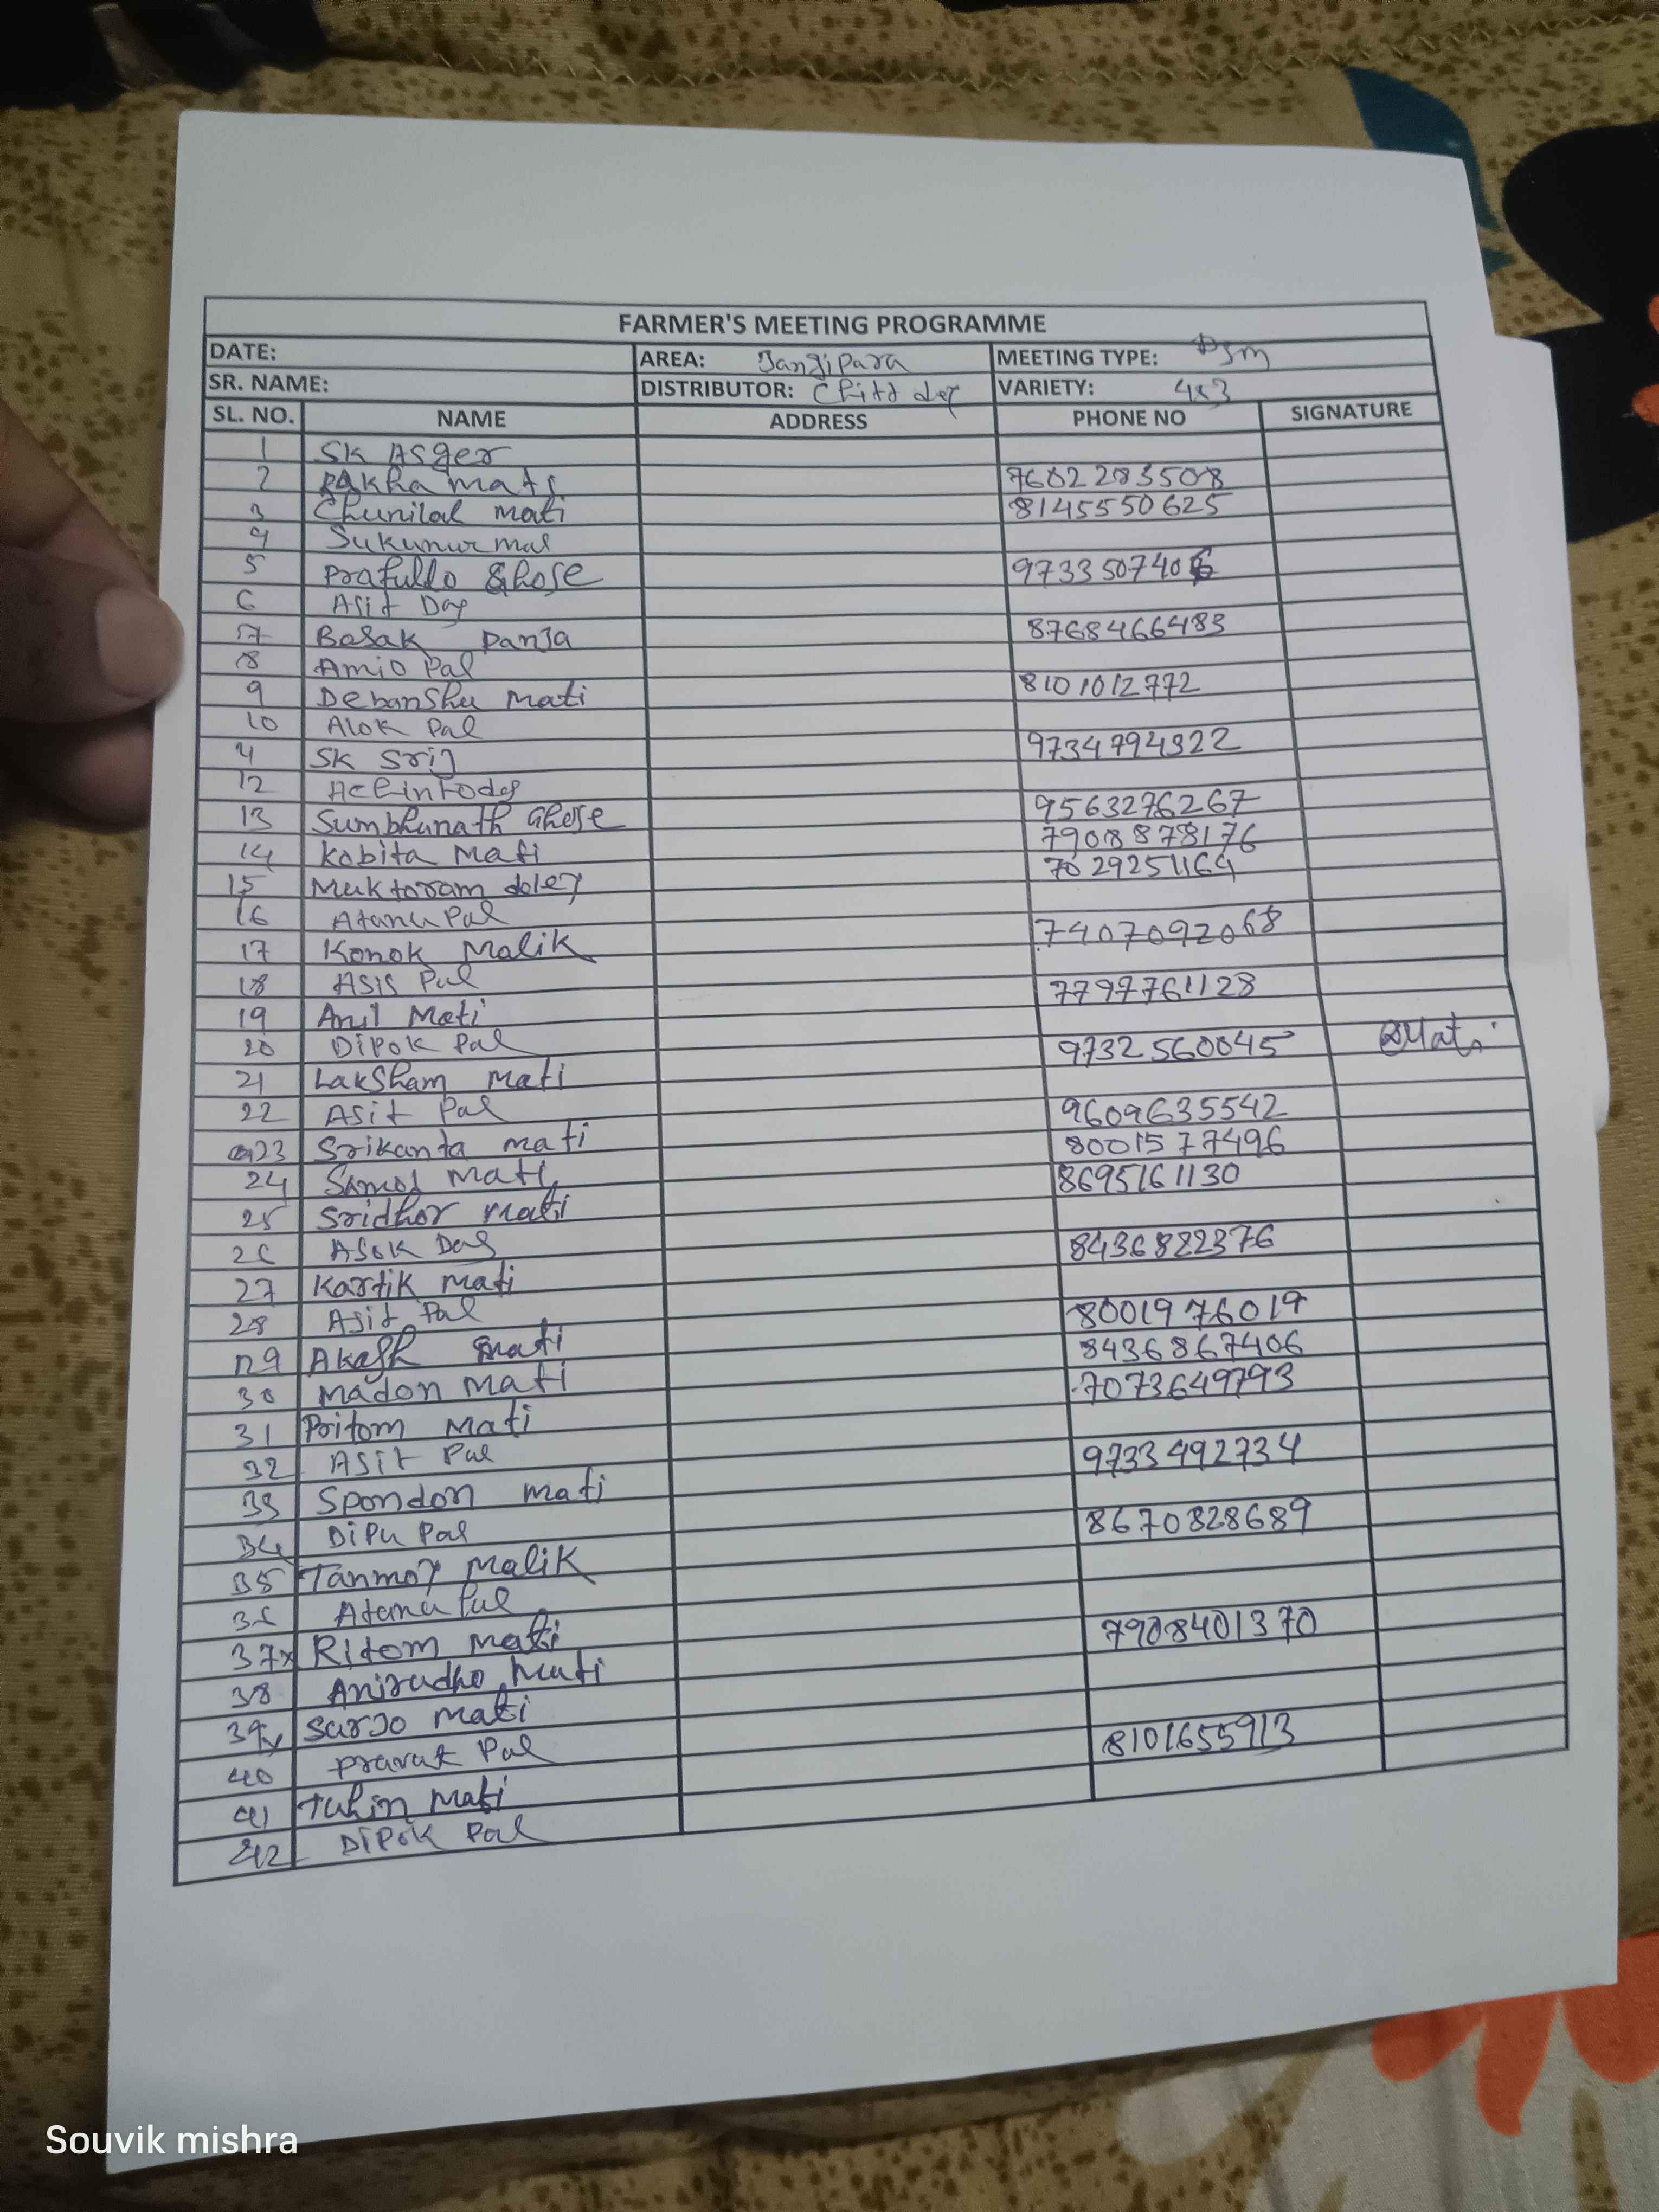 FARMER'S MEETING PROGRAMME
DATE: AREA: Jangipara MEETING TYPE: DSM
SR. NAME: DISTRIBUTOR: Chitt dey VARIETY: 4x3
SL. NO. NAME ADDRESS PHONE NO SIGNATURE
1 SK Asger
2 Rakha mati 7602283508
3 Chunilal mati 8145550625
4 Sukunur mal
5 Prafullo Ghose 9733507406
6 Asit Das
7 Basak Panja 8768466483
8 Amio Pal
9 Debanshu Mati 8101012772
10 Alok Pal
11 SK Srij 9734794322
12
13 Sumbhunath Ghose 9563276267
14 Kobita Mati 7908878176
15 Muktaram doley 7029251164
16 Atanu Pal
17 Konok Malik 7407092068
18 Asis Pal
19 Anil Mati 7797761128
20 Dipok Pal
21 Laksham Mati 9732560045 Mati
22 Asit Pal
23 Srikanta mati 9609635542
24 Samos mati 8001577496
25 Sridhor mati 8695161130
26 Asok Das
27 Kartik mati 8436822376
28 Asit Pal
29 Akash mati 8001976019
30 Madon mati 8436867406
31 Pritom Mati 7073649793
32 Asit Pal
33 Spondon mati 9733492734
34 Dipu Pal
35 Tanmoy Malik 8670828689
36 Atanu Pal
37x Ritom mati
38 Anirudho Mati 7908401370
39x Surjo mati
40 Pravat Pal
41 Tuhin Mati 8101655913
42 Dipok Pal
Souvik mishra